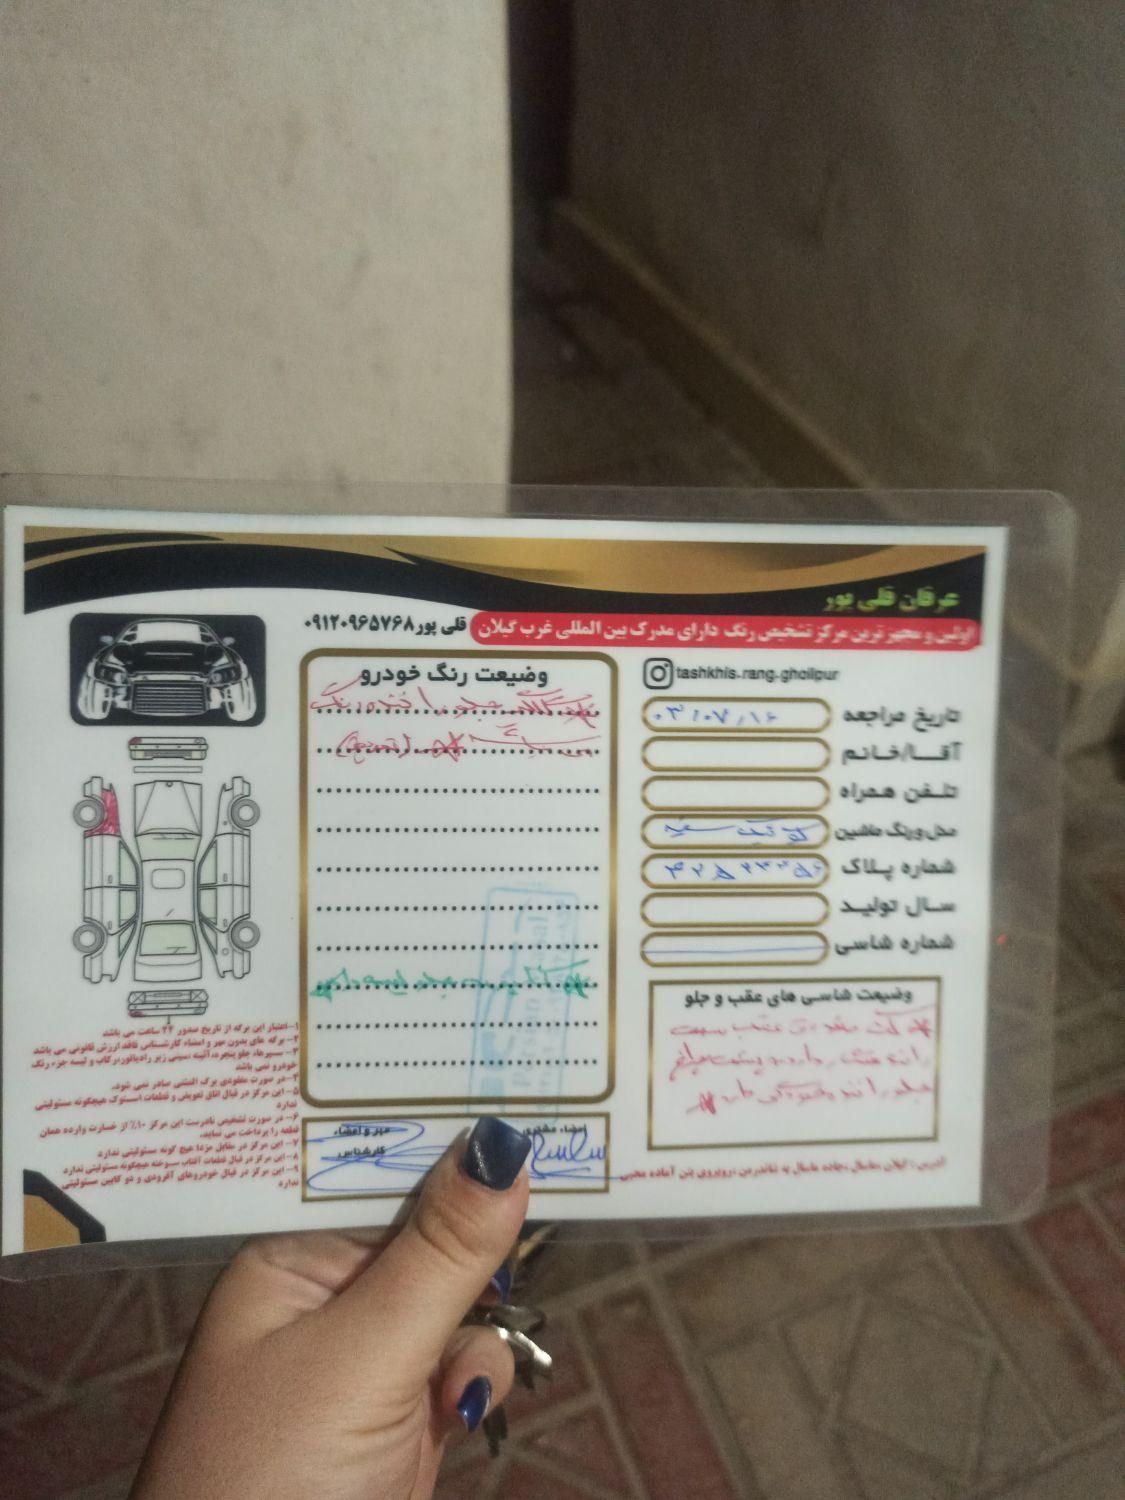 عرفان قلی پور
اولین و مجهزترین مرکز تشخیص رنگ دارای مدرک بین المللی غرب گیلان
قلی پور ۰۹۱۲۰۹۶۵۷۶۸
tashkhis.rang.gholipur
تاریخ مراجعه ۰۳/۰۷/۱۶
آقا/خانم
تلفن همراه
مدل و رنگ ماشین
شماره پلاک
سال تولید
شماره شاسی
وضیعت شاسی های عقب و جلو
جلو راننده
وضیعت رنگ خودرو
گلگیر جلو راننده رنگ
امضاء مشتری
مهر و امضاء
کارشناس
۱-اعتبار این برگه از تاریخ صدور ۲۴ ساعت می باشد
۲- برگه های بدون مهر و امضاء کارشناس فاقد ارزش قانونی می باشد
۳- سپرها، جلو پنجره، آئینه، سینی زیر رادیاتور، رکاب و لیسه جزء رنگ
خودرو نمی باشد
۴-در صورت مفقودی برگ المثنی صادر نمی شود.
۵- این مرکز در قبال اتاق تعویض و قطعات استوک هیچگونه مسئولیتی
ندارد
۶- در صورت تشخیص نادرست این مرکز ۱۰٪ از خسارت وارده همان
قطعه را پرداخت می نماید.
۷- این مرکز در مقابل مزدا هیچ گونه مسئولیتی ندارد
۸-این مرکز در قبال قطعات آفتاب سوخته هیچگونه مسئولیتی ندارد
۹- این مرکز در قبال خودروهای آفرودی و دو کابین مسئولیتی
ندارد
آدرس : گیلان ،ماسال ،جاده ماسال به شاندرمن ،روبروی بتن آماده محبی